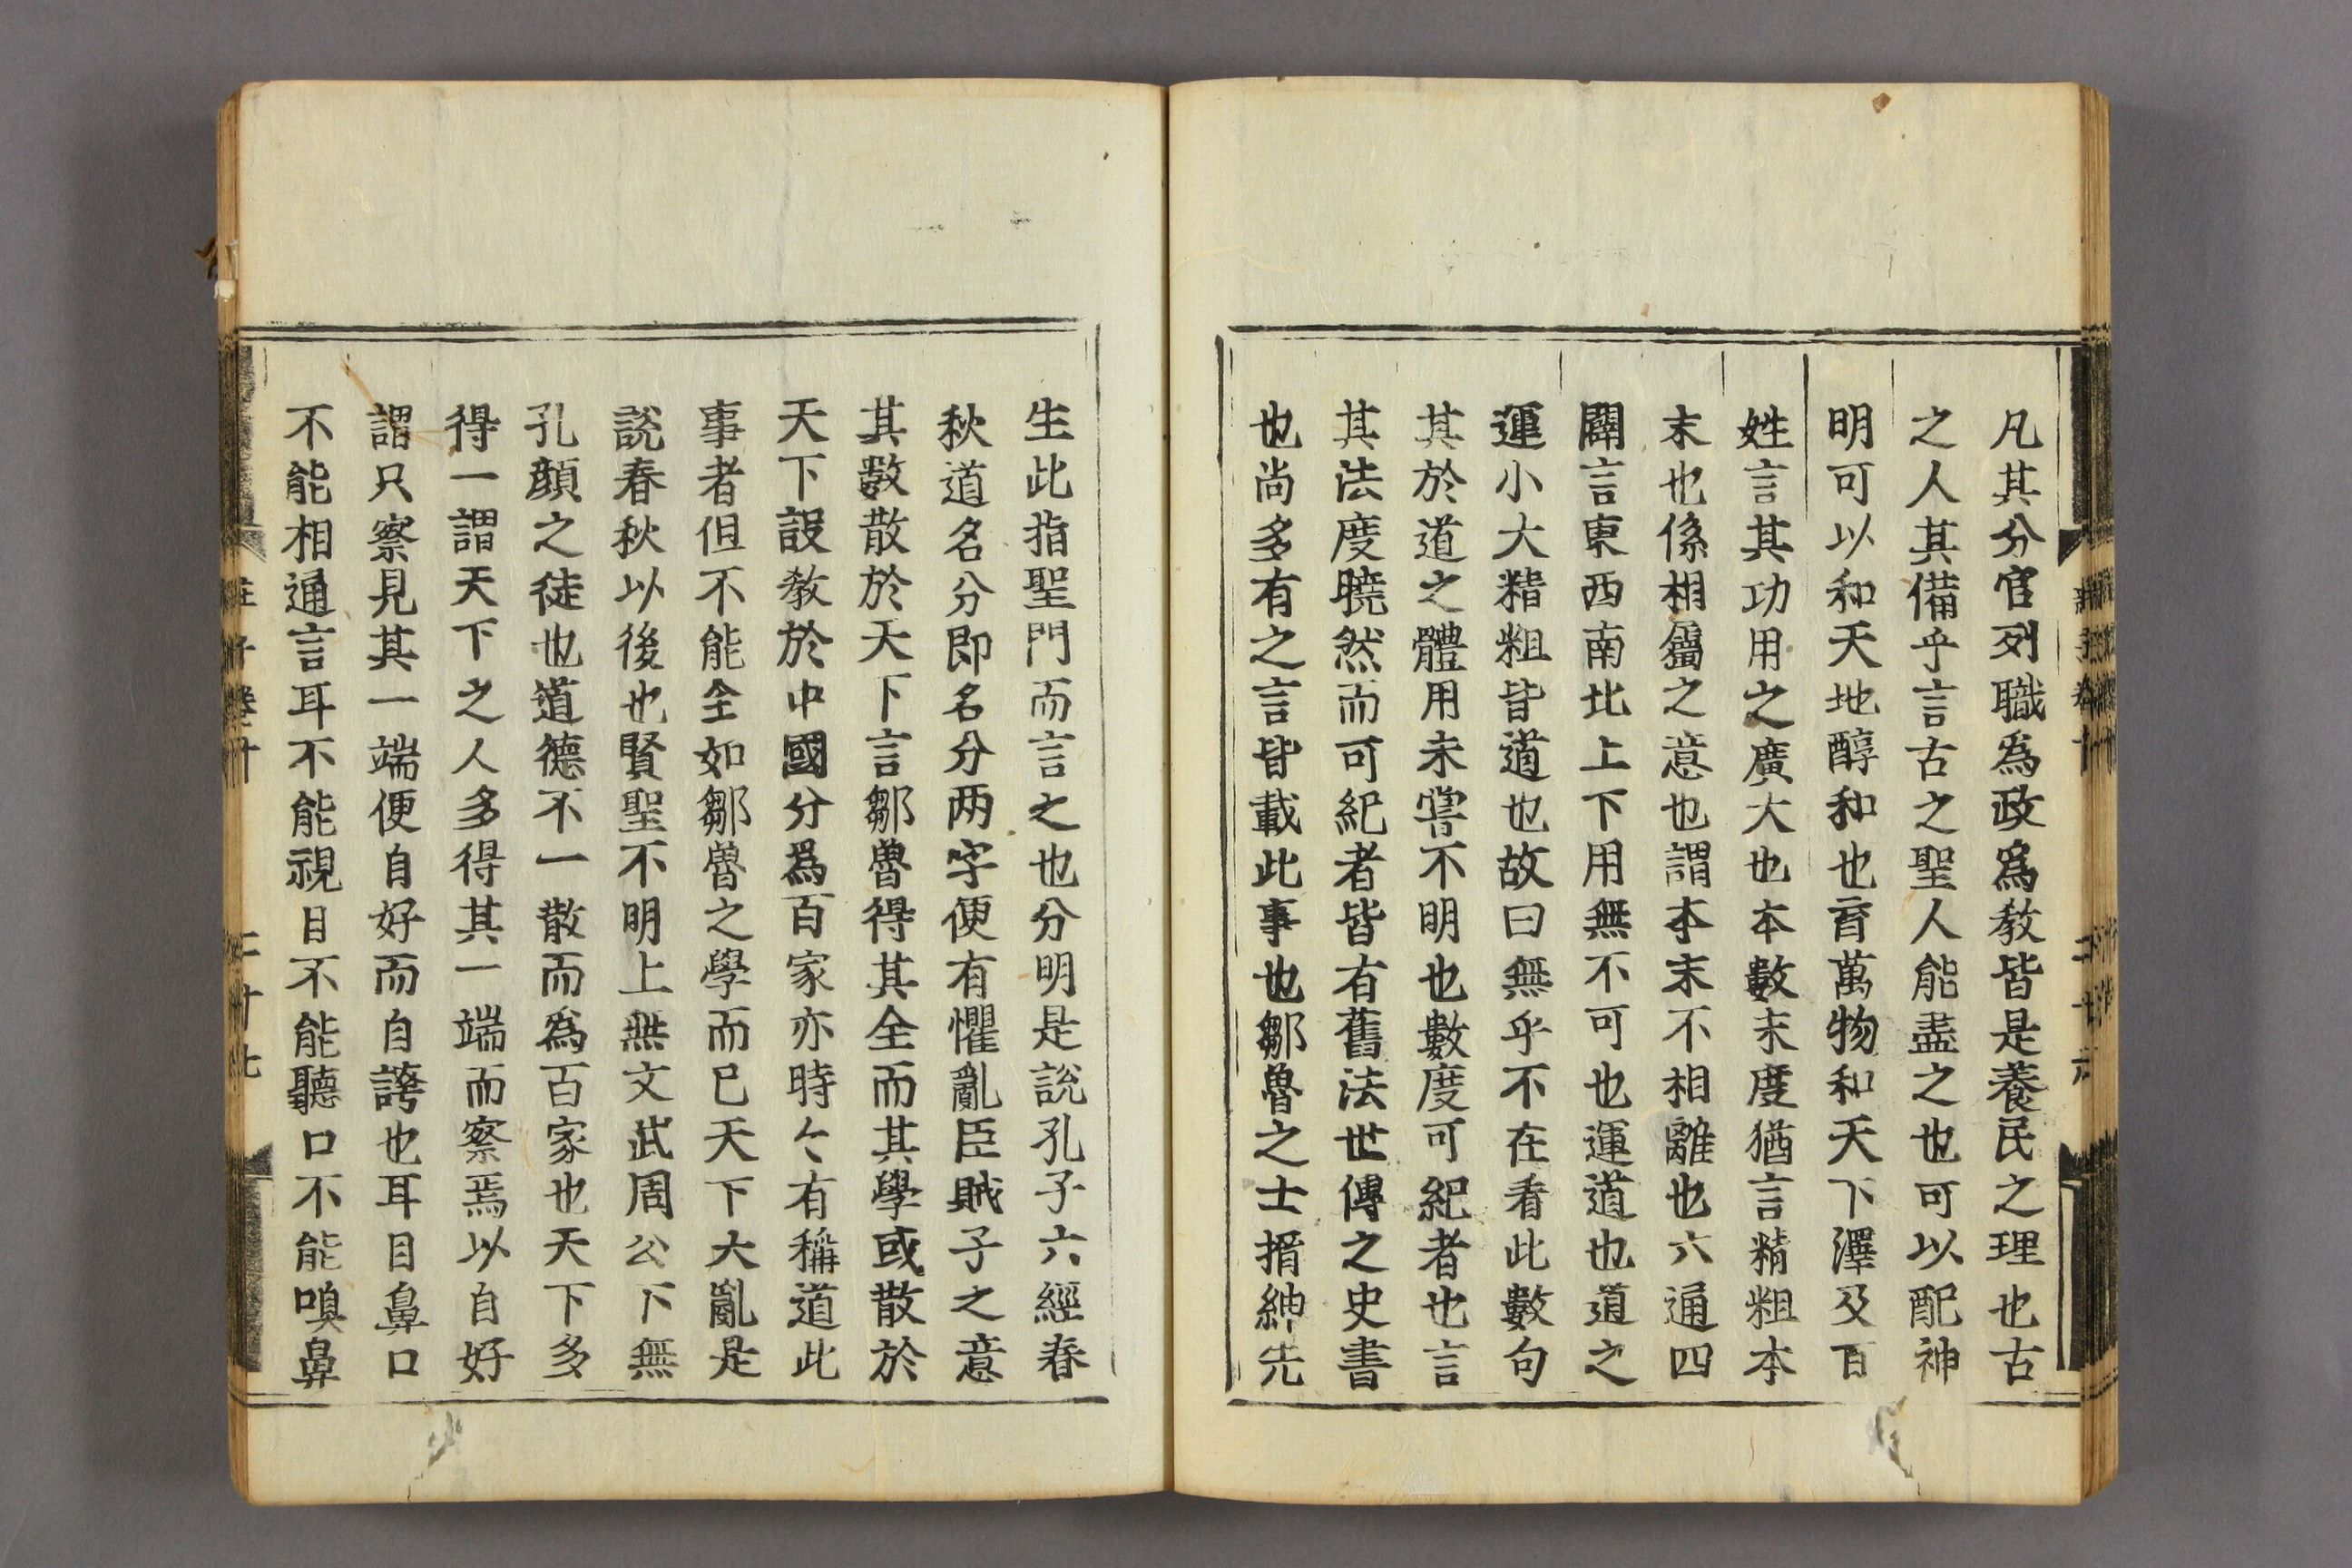 凡其分官列職為政為教皆是養民之理也古
之人其備乎言古之聖人能盡之也可以配神
明可以和天地醇和也育萬物和天下澤及百
姓言其功用之廣大也本數末度猶言精粗本
末也係相屬之意也謂本末不相離也六通四
闢言東西南北上下用無不可也運道也道之
運小大精粗皆道也故曰無乎不在看此數句
其於道之體用未嘗不明也數度可紀者也言
其法度曉然而可紀者皆有舊法世傳之史書
也尚多有之言皆載此事也鄒魯之士搢紳先
生此指聖門而言之也分明是說孔子六經春
秋道名分即名分两字便有懼亂臣賊子之意
其數散於天下言鄒魯得其全而其學或散於
天下設教於中國分為百家亦時〻有稱道此
事者但不能全如鄒魯之學而已天下大亂是
說春秋以後也賢聖不明上無文武周公下無
孔顏之徒也道德不一散而為百家也天下多
得一謂天下之人多得其一端而察焉以自好
謂只察見其一端便自好而自誇也耳目鼻口
不能相通言耳不能視目不能聽口不能嗅鼻
莊子卷十 二十七